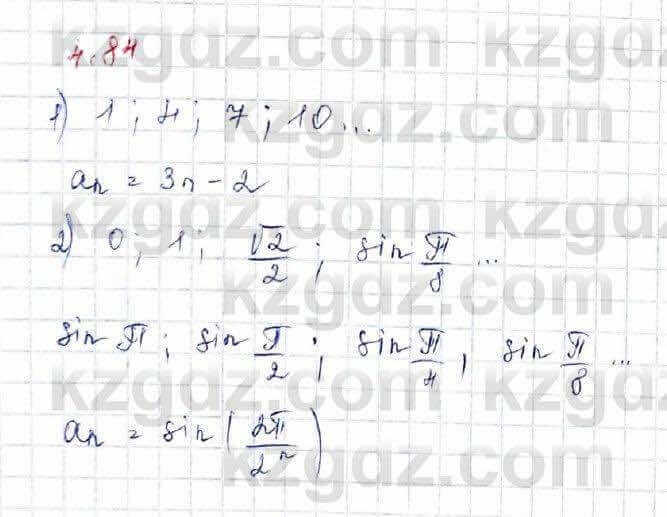 4.84
1) 1; 4; 7; 10...
an = 3n - 2
2) 0; 1; √2/2; sin π/8 ...
sin π; sin π/2; sin π/4, sin π/8 ...
an = sin(2π/2^n)
kzgdz.com kzgdz.com
kzgdz.com
kzgdz.com kzgdz.com
kzgdz.com
kzgdz.com kzgdz.com
kzgdz.com